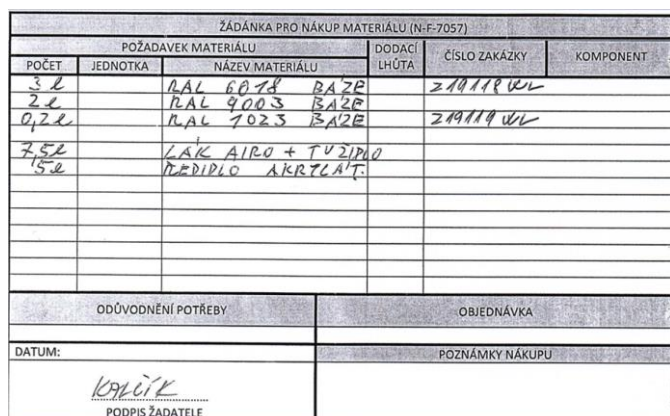 ŽÁDÁNKA PRO NÁKUP MATERIÁLU (N-F-7057)
POŽADAVEK MATERIÁLU DODACÍ LHŮTA ČÍSLO ZAKÁZKY KOMPONENT
POČET JEDNOTKA NÁZEV MATERIÁLU
3 l RAL 6018 BÁZE Z19118
2 l RAL 9003 BÁZE
0,2 l RAL 1023 BÁZE Z19119
7,5 l LAK AIRO + TUŽIDLO
5 l ŘEDIDLO AKRYLÁT.
ODŮVODNĚNÍ POTŘEBY OBJEDNÁVKA
DATUM: POZNÁMKY NÁKUPU
KALČÍK
PODPIS ŽADATELE